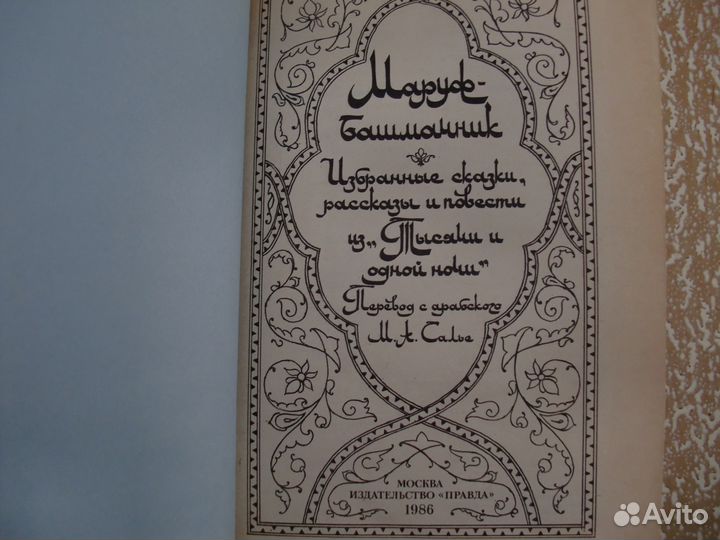 Маруф-
башмачник
Избранные сказки,
рассказы и повести
из „Тысячи и
одной ночи“
Перевод с арабского
М. А. Салье
МОСКВА
ИЗДАТЕЛЬСТВО «ПРАВДА»
1986
Avito